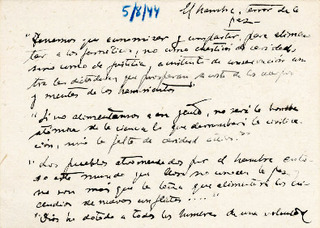 5/8/44
El hambre, error de la
paz—
"Tenemos que economizar y compartir, para alimen-
tar a los famélicos, no como cuestión de caridad,
sino como de justicia, a
tra las dictaduras que prosperan a costa de los cuerpos
y mentes de los hambrientos"
"Si no alimentamos a esa gente, no será la bomba
atómica de la ciencia lo que derrumbará la civiliza-
ción, sino la falta de caridad
"Los pueblos atormentados por el hambre en to-
do este mundo que no conocen la paz, y
no son más que la leña que alimentará los in-
cendios de nuevos conflictos..."
"Dios ha dotado a todos los hombres de una voluntad